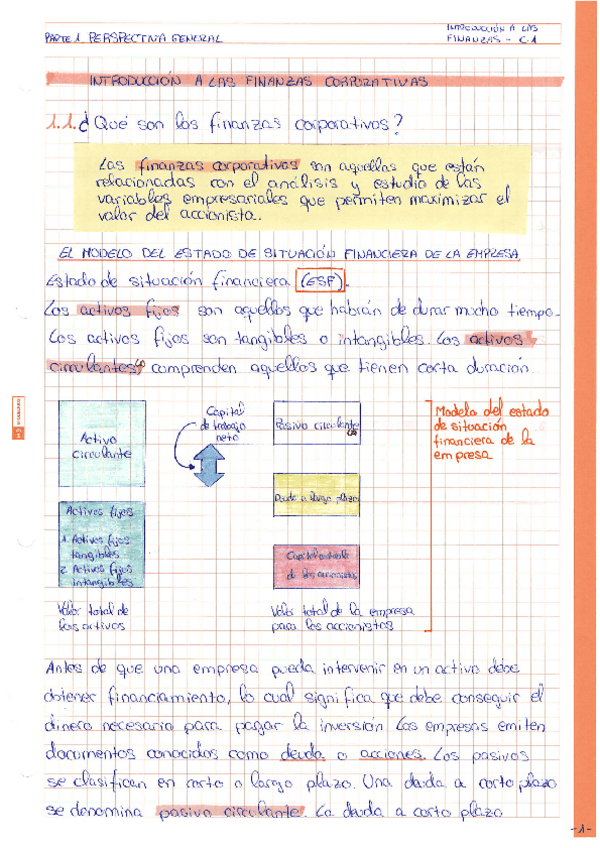 PARTE 1 PERSPECTIVA GENERAL
INTRODUCCIÓN A LAS
FINANZAS - C.1
INTRODUCCIÓN A LAS FINANZAS CORPORATIVAS
1.1. ¿Qué son las finanzas corporativas?
Las finanzas corporativas son aquellas que están
relacionadas con el análisis y estudio de las
variables empresariales que permiten maximizar el
valor del accionista.
EL MODELO DEL ESTADO DE SITUACIÓN FINANCIERA DE LA EMPRESA
Estado de situación financiera (ESF).
Los activos fijos son aquellos que habrán de durar mucho tiempo.
Los activos fijos son tangibles o intangibles. Los activos
circulantes, comprenden aquellos que tienen corta duración.
Activo
circulante
Capital
de trabajo
neto
Pasivo circulante
Modelo del estado
de situación
financiera de la
empresa
Activos fijos
1. Activos fijos
tangibles
2. Activos fijos
intangibles
Deuda a largo plazo
Capital contable
de los accionistas
Valor total de
los activos
Valor total de la empresa
para los accionistas
Antes de que una empresa pueda intervenir en un activo debe
obtener financiamiento, lo cual significa que debe conseguir el
dinero necesario para pagar la inversión. Las empresas emiten
documentos conocidos como deuda o acciones. Los pasivos
se clasifican en corto o largo plazo. Una deuda a corto plazo
se denomina pasivo circulante. La deuda a corto plazo
-1-